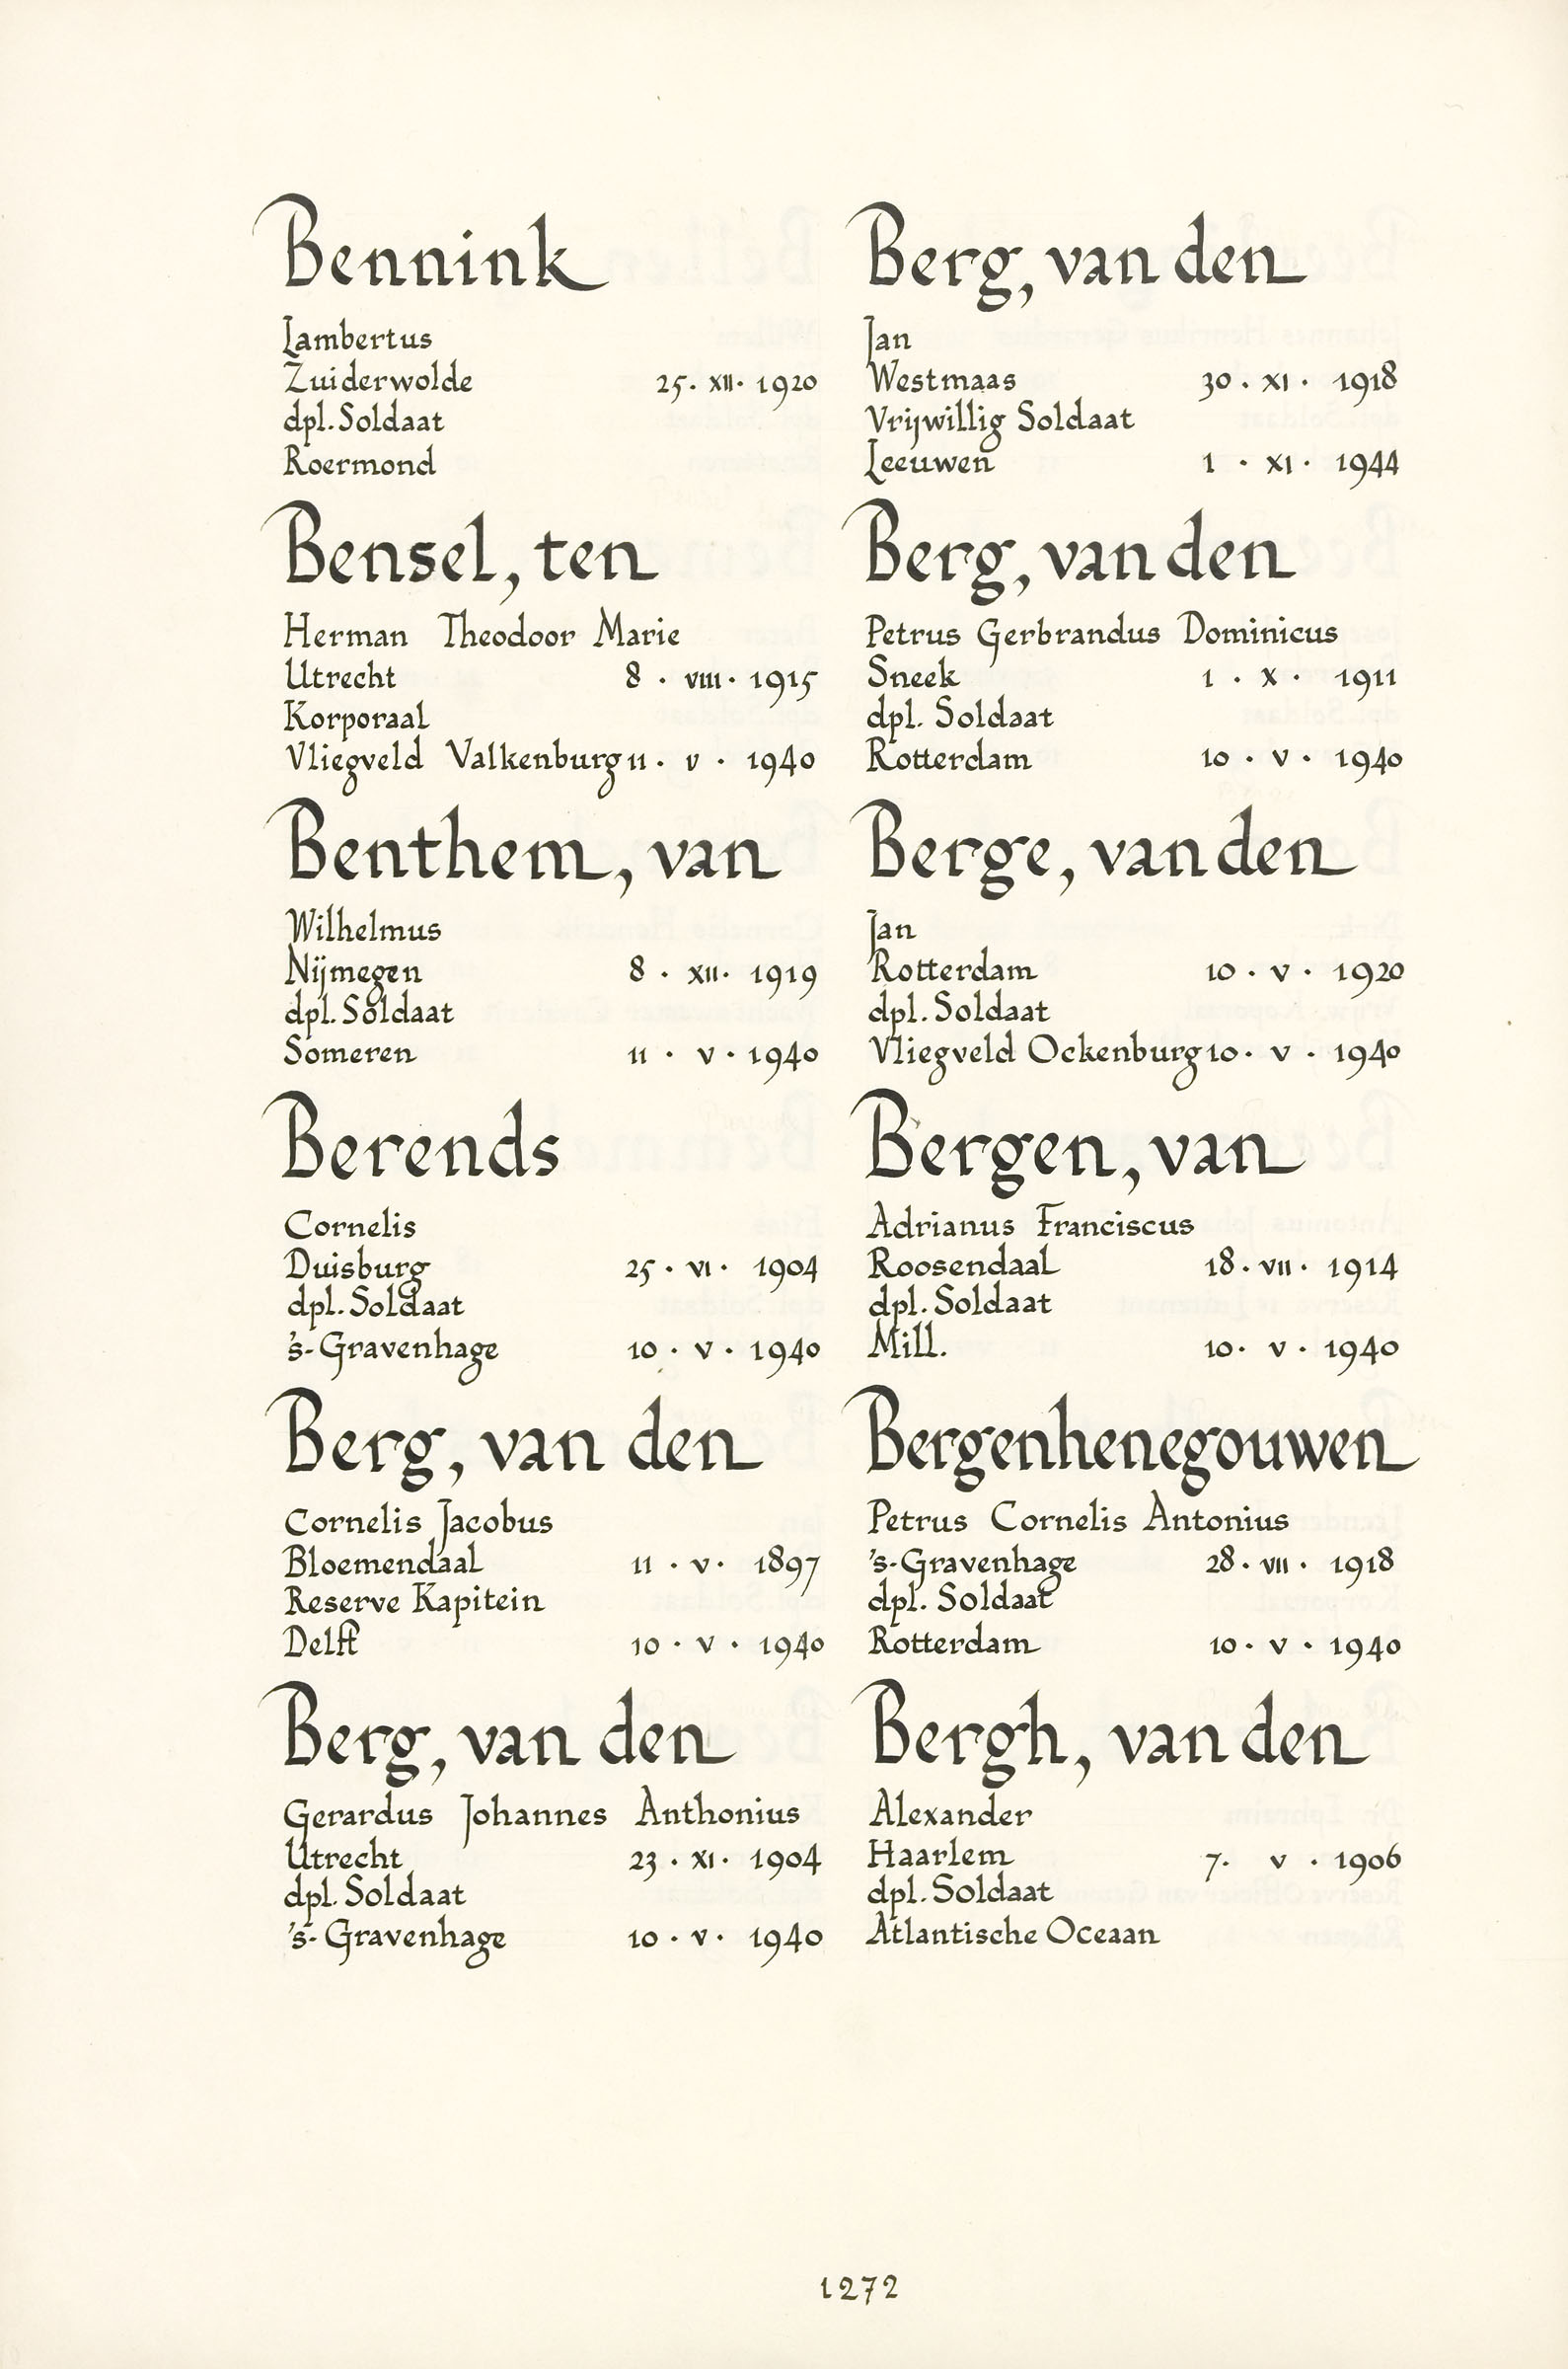 Bennink
Lambertus
Zuiderwolde 25 · XII · 1920
dpl. Soldaat
Roermond
Bensel, ten
Herman Theodoor Marie
Utrecht 8 · VIII · 1915
Korporaal
Vliegveld Valkenburg 11 · V · 1940
Benthem, van
Wilhelmus
Nijmegen 8 · XII · 1919
dpl. Soldaat
Someren 11 · V · 1940
Berends
Cornelis
Duisburg 25 · VI · 1904
dpl. Soldaat
's-Gravenhage 10 · V · 1940
Berg, van den
Cornelis Jacobus
Bloemendaal 11 · V · 1897
Reserve Kapitein
Delft 10 · V · 1940
Berg, van den
Gerardus Johannes Anthonius
Utrecht 23 · XI · 1904
dpl. Soldaat
's-Gravenhage 10 · V · 1940
Berg, van den
Jan
Westmaas 30 · XI · 1918
Vrijwillig Soldaat
Leeuwen 1 · XI · 1944
Berg, van den
Petrus Gerbrandus Dominicus
Sneek 1 · X · 1911
dpl. Soldaat
Rotterdam 10 · V · 1940
Berge, van den
Jan
Rotterdam 10 · V · 1920
dpl. Soldaat
Vliegveld Ockenburg 10 · V · 1940
Bergen, van
Adrianus Franciscus
Roosendaal 18 · VII · 1914
dpl. Soldaat
Mill. 10 · V · 1940
Bergenhenegouwen
Petrus Cornelis Antonius
's-Gravenhage 28 · VII · 1918
dpl. Soldaat
Rotterdam 10 · V · 1940
Bergh, van den
Alexander
Haarlem 7 · V · 1906
dpl. Soldaat
Atlantische Oceaan
1272